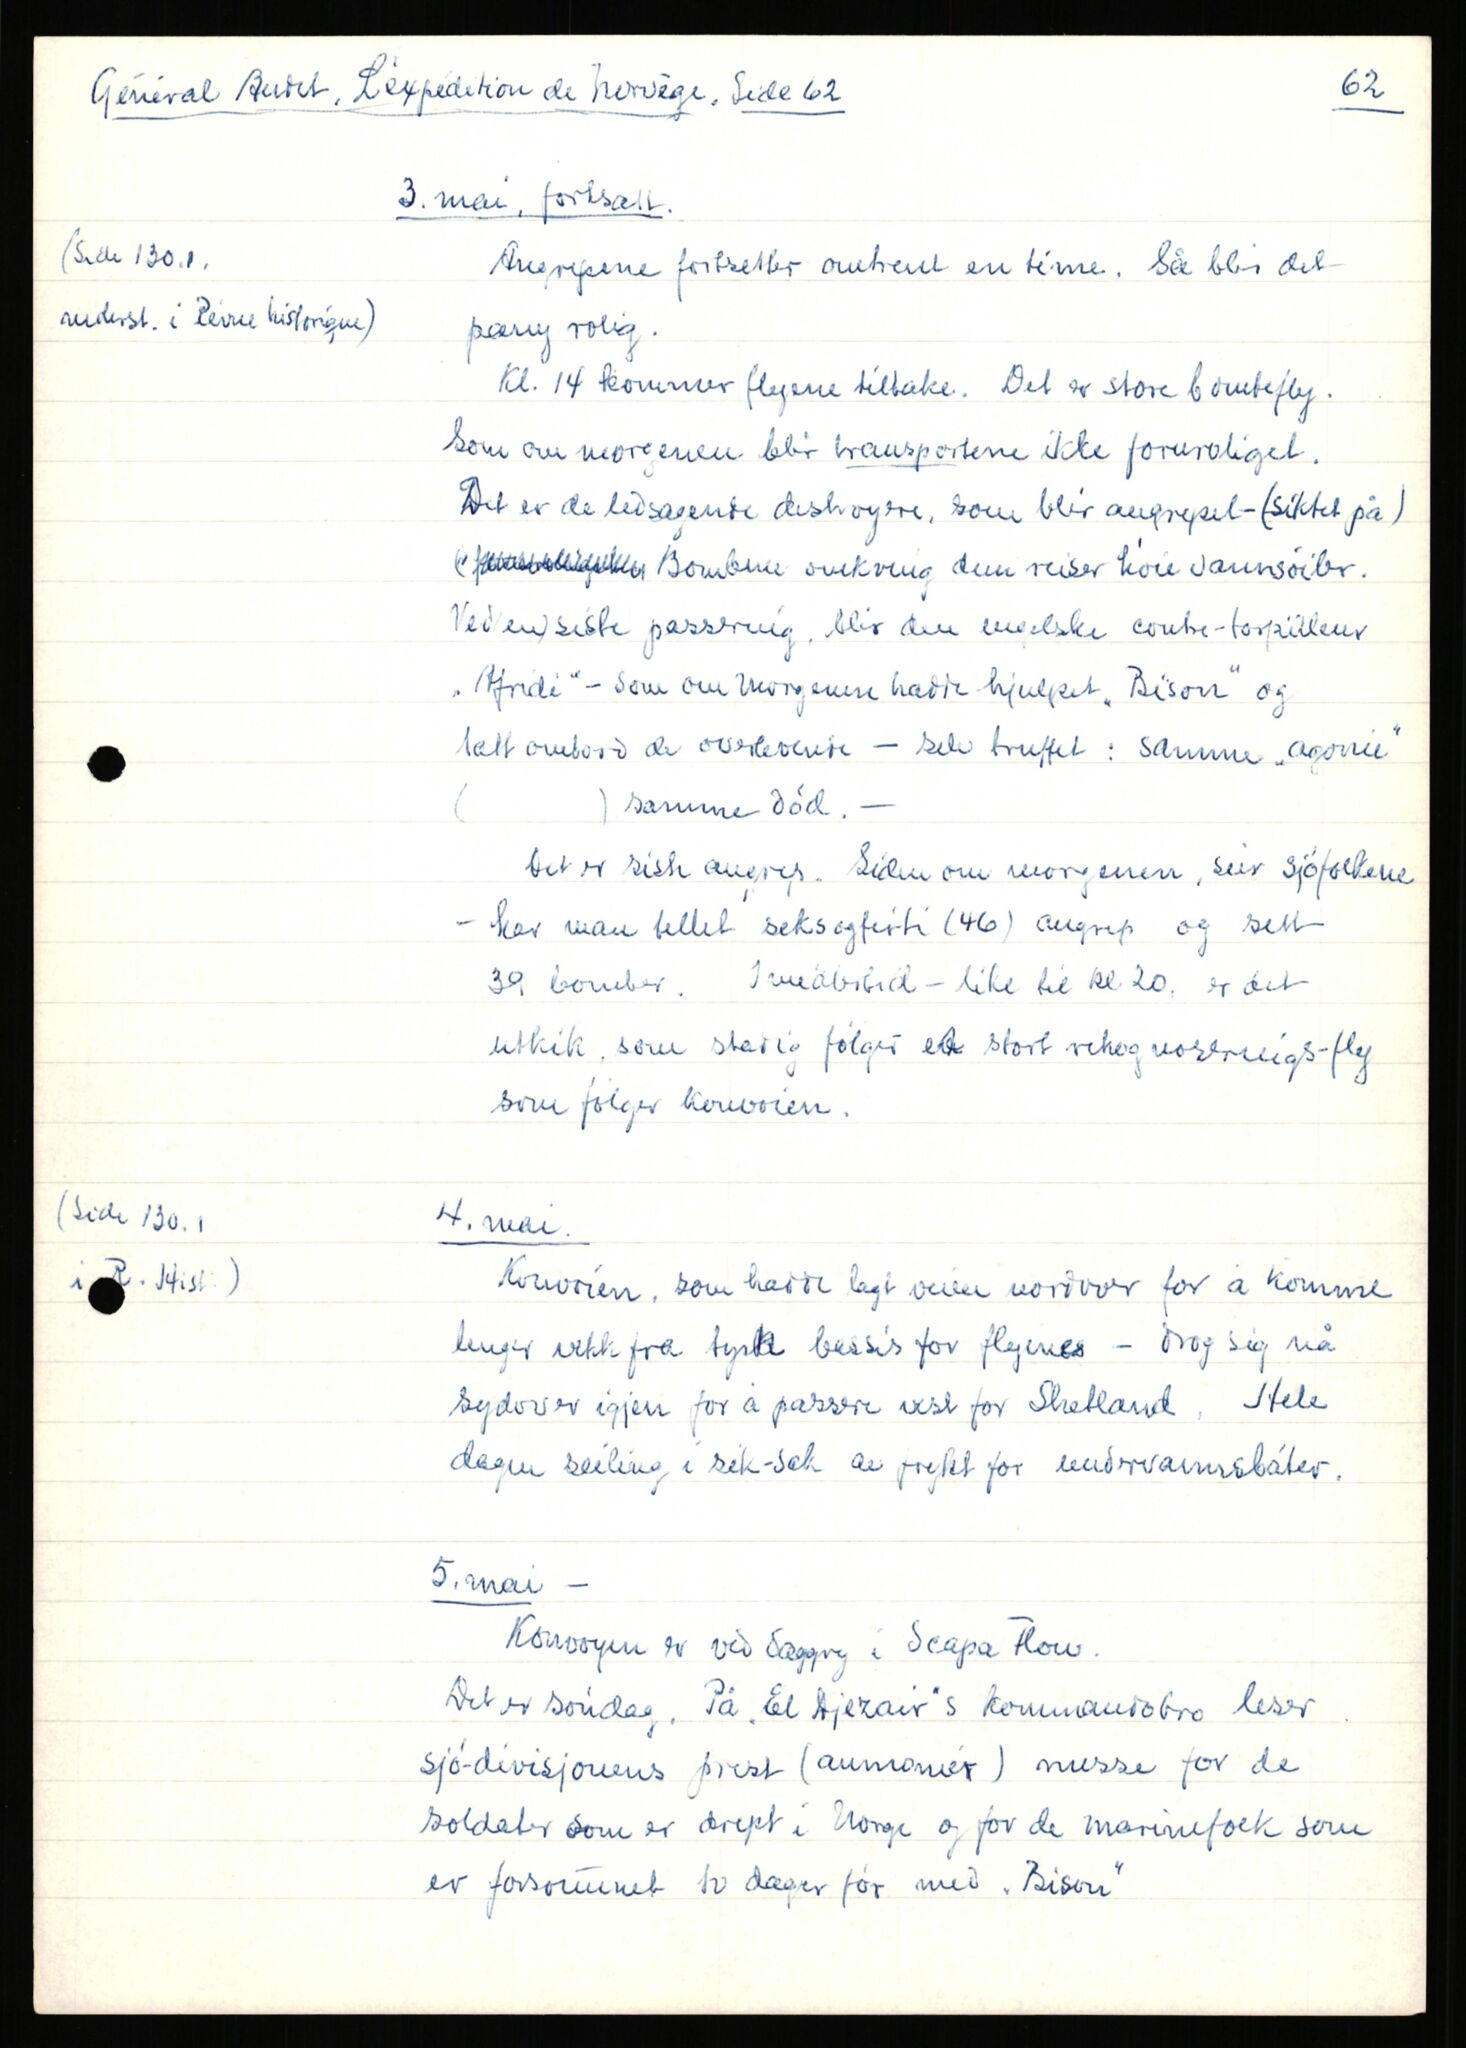 Général Audet, L'expédition de Norvège. Side 62
62
3. mai, fortsatt.
(Side 130.1.
nederst. i Révue historique)
Angrepene fortsetter omtrent en time. Så blir det
pany rolig.
Kl. 14 kommer flyene tilbake. Det er store bombefly.
Som om morgenen blir transportene ikke foruroliget.
Det er de ledsagende destroyere, som blir angrepet - (siktet på)
Bombene omkring dem reiser höie vannsöiler.
Ved (en) siste passering, blir den engelske contre-torpilleur
"Afridi" - som om morgenen hadde hjulpet "Bison" og
tatt ombord de overlevende - selv truffet: samme "agonie"
( ) samme död. -
Det er siste angrep. Siden om morgenen, sier sjöfolkene
- har man tellet seksogförti (46) angrep og sett
39 bomber. Imidlertid - like til kl 20, er det
utkik, som stadig fölger et stort rekognoserings-fly
som fölger konvoien.
(Side 130.1
i R. Hist.)
4. mai.
Konvoien, som hadde lagt veien nordover for å komme
lenger vekk fra tysk bassis for flyenes - drog sig nå
sydover igjen for å passere vest for Shetland. Hele
dagen seiling i sik-sak av frykt for undervannsbåter.
5. mai -
Konvoyen er ved daggry i Scapa Flow.
Det er söndag. På "El Djezair"s kommandobro leser
sjö-divisjonens prest (aumonier) messe for de
soldater som er drept i Norge og for de marinefolk som
er forsvunnet to dager för med "Bison"